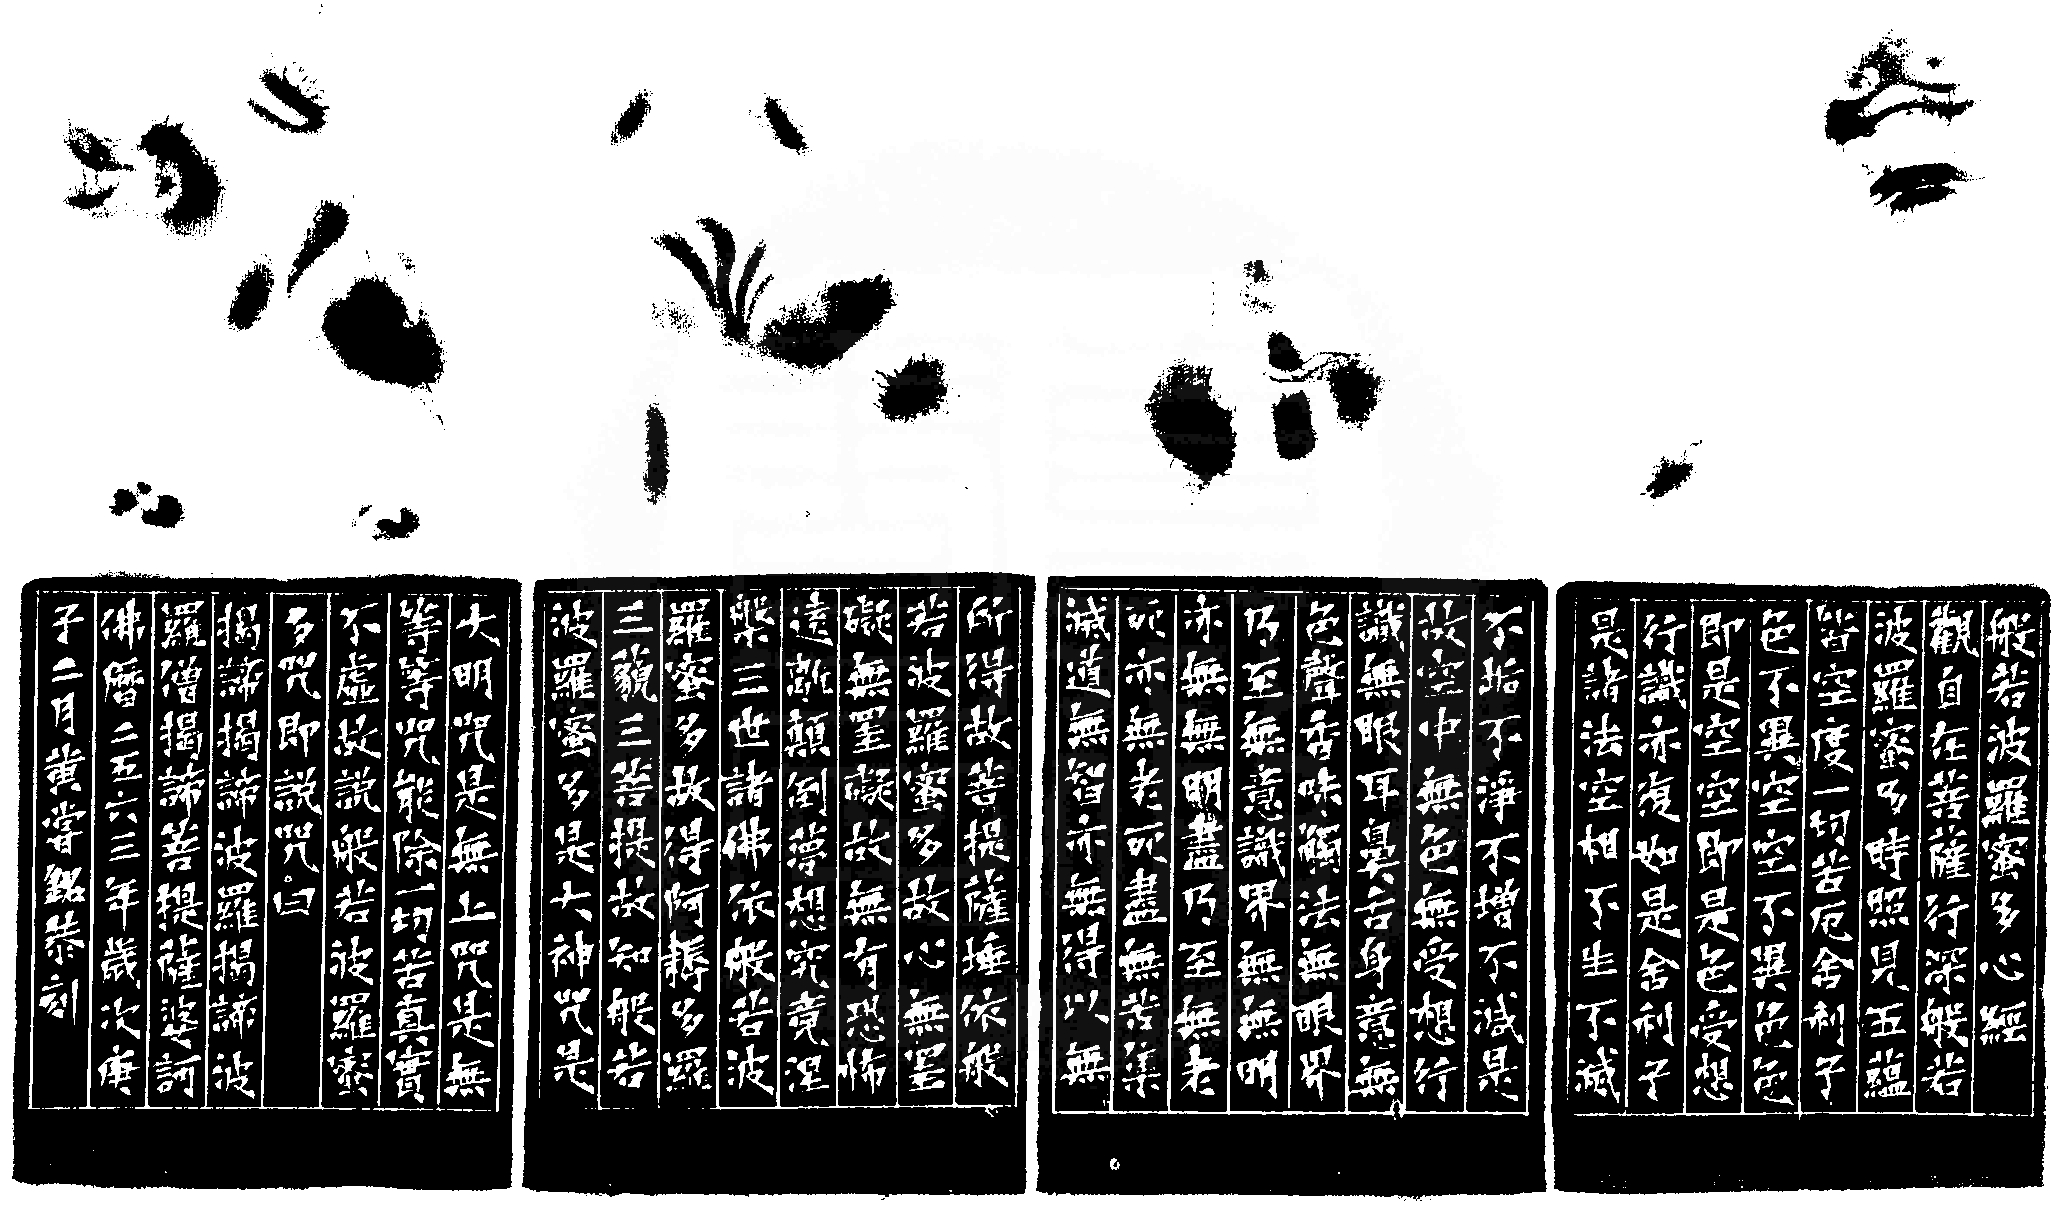 般若波羅蜜多心經
觀自在菩薩行深般若
波羅蜜多時照見五蘊
皆空度一切苦厄舍利子
色不異空空不異色色
即是空空即是色受想
行識亦復如是舍利子
是諸法空相不生不滅
不垢不淨不增不減是
故空中無色無受想行
識無眼耳鼻舌身意無
色聲香味觸法無眼界
乃至無意識界無無明
亦無無明盡乃至無老
死亦無老死盡無苦集
滅道無智亦無得以無
所得故菩提薩埵依般
若波羅蜜多故心無罣
礙無罣礙故無有恐怖
遠離顛倒夢想究竟涅
槃三世諸佛依般若波
羅蜜多故得阿耨多羅
三藐三菩提故知般若
波羅蜜多是大神咒是
大明咒是無上咒是無
等等咒能除一切苦真實
不虛故說般若波羅蜜
多咒即說咒曰
揭諦揭諦波羅揭諦波
羅僧揭諦菩提薩婆訶
佛曆二五六三年歲次庚
子二月黃銘恭刻